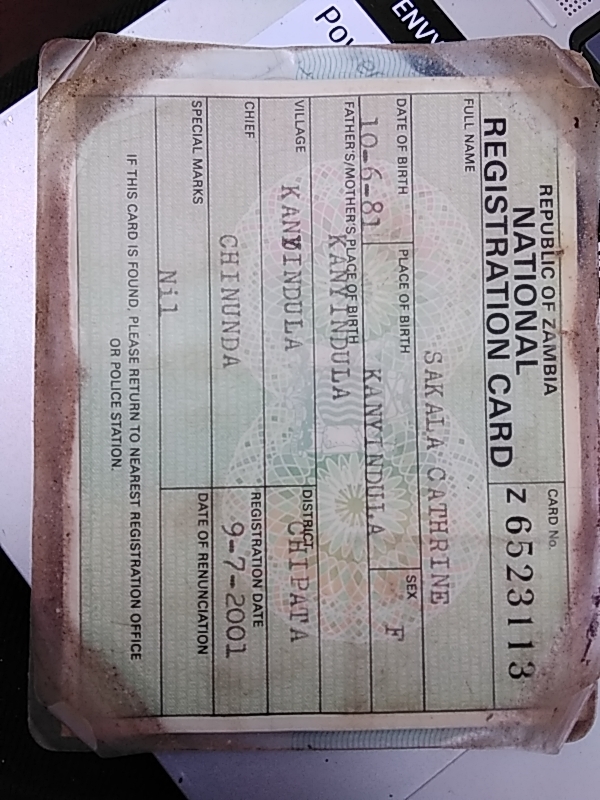 ENVY
Po
REPUBLIC OF ZAMBIA
NATIONAL
REGISTRATION CARD
CARD No.
Z 6523113
FULL NAME
SAKALA CATHRINE
DATE OF BIRTH
10-6-81
PLACE OF BIRTH
KANYINDULA
SEX
F
FATHER'S/MOTHER'S PLACE OF BIRTH
KANYINDULA
VILLAGE
KANYINDULA
DISTRICT
CHIPATA
CHIEF
CHINUNDA
REGISTRATION DATE
9-7-2001
SPECIAL MARKS
Nil
DATE OF RENUNCIATION
IF THIS CARD IS FOUND, PLEASE RETURN TO NEAREST REGISTRATION OFFICE
OR POLICE STATION.